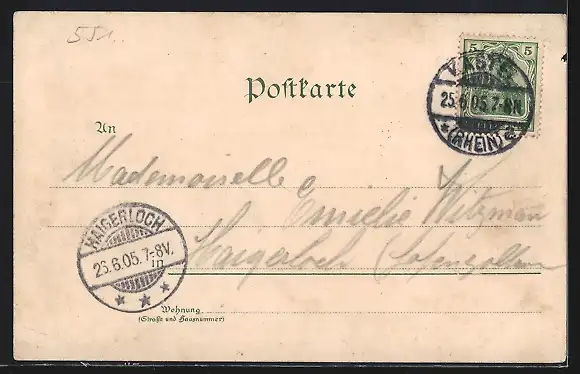 551.
5 5
Postkarte
25.6.05.7-8N.
*(RHEIN)*
An
Mademoiselle
Emilie Witzman
HAIGERLOCH
26.6.05.7-8V.
Haigerloch (Hohenzollern
Wohnung
(Straße und Hausnummer)